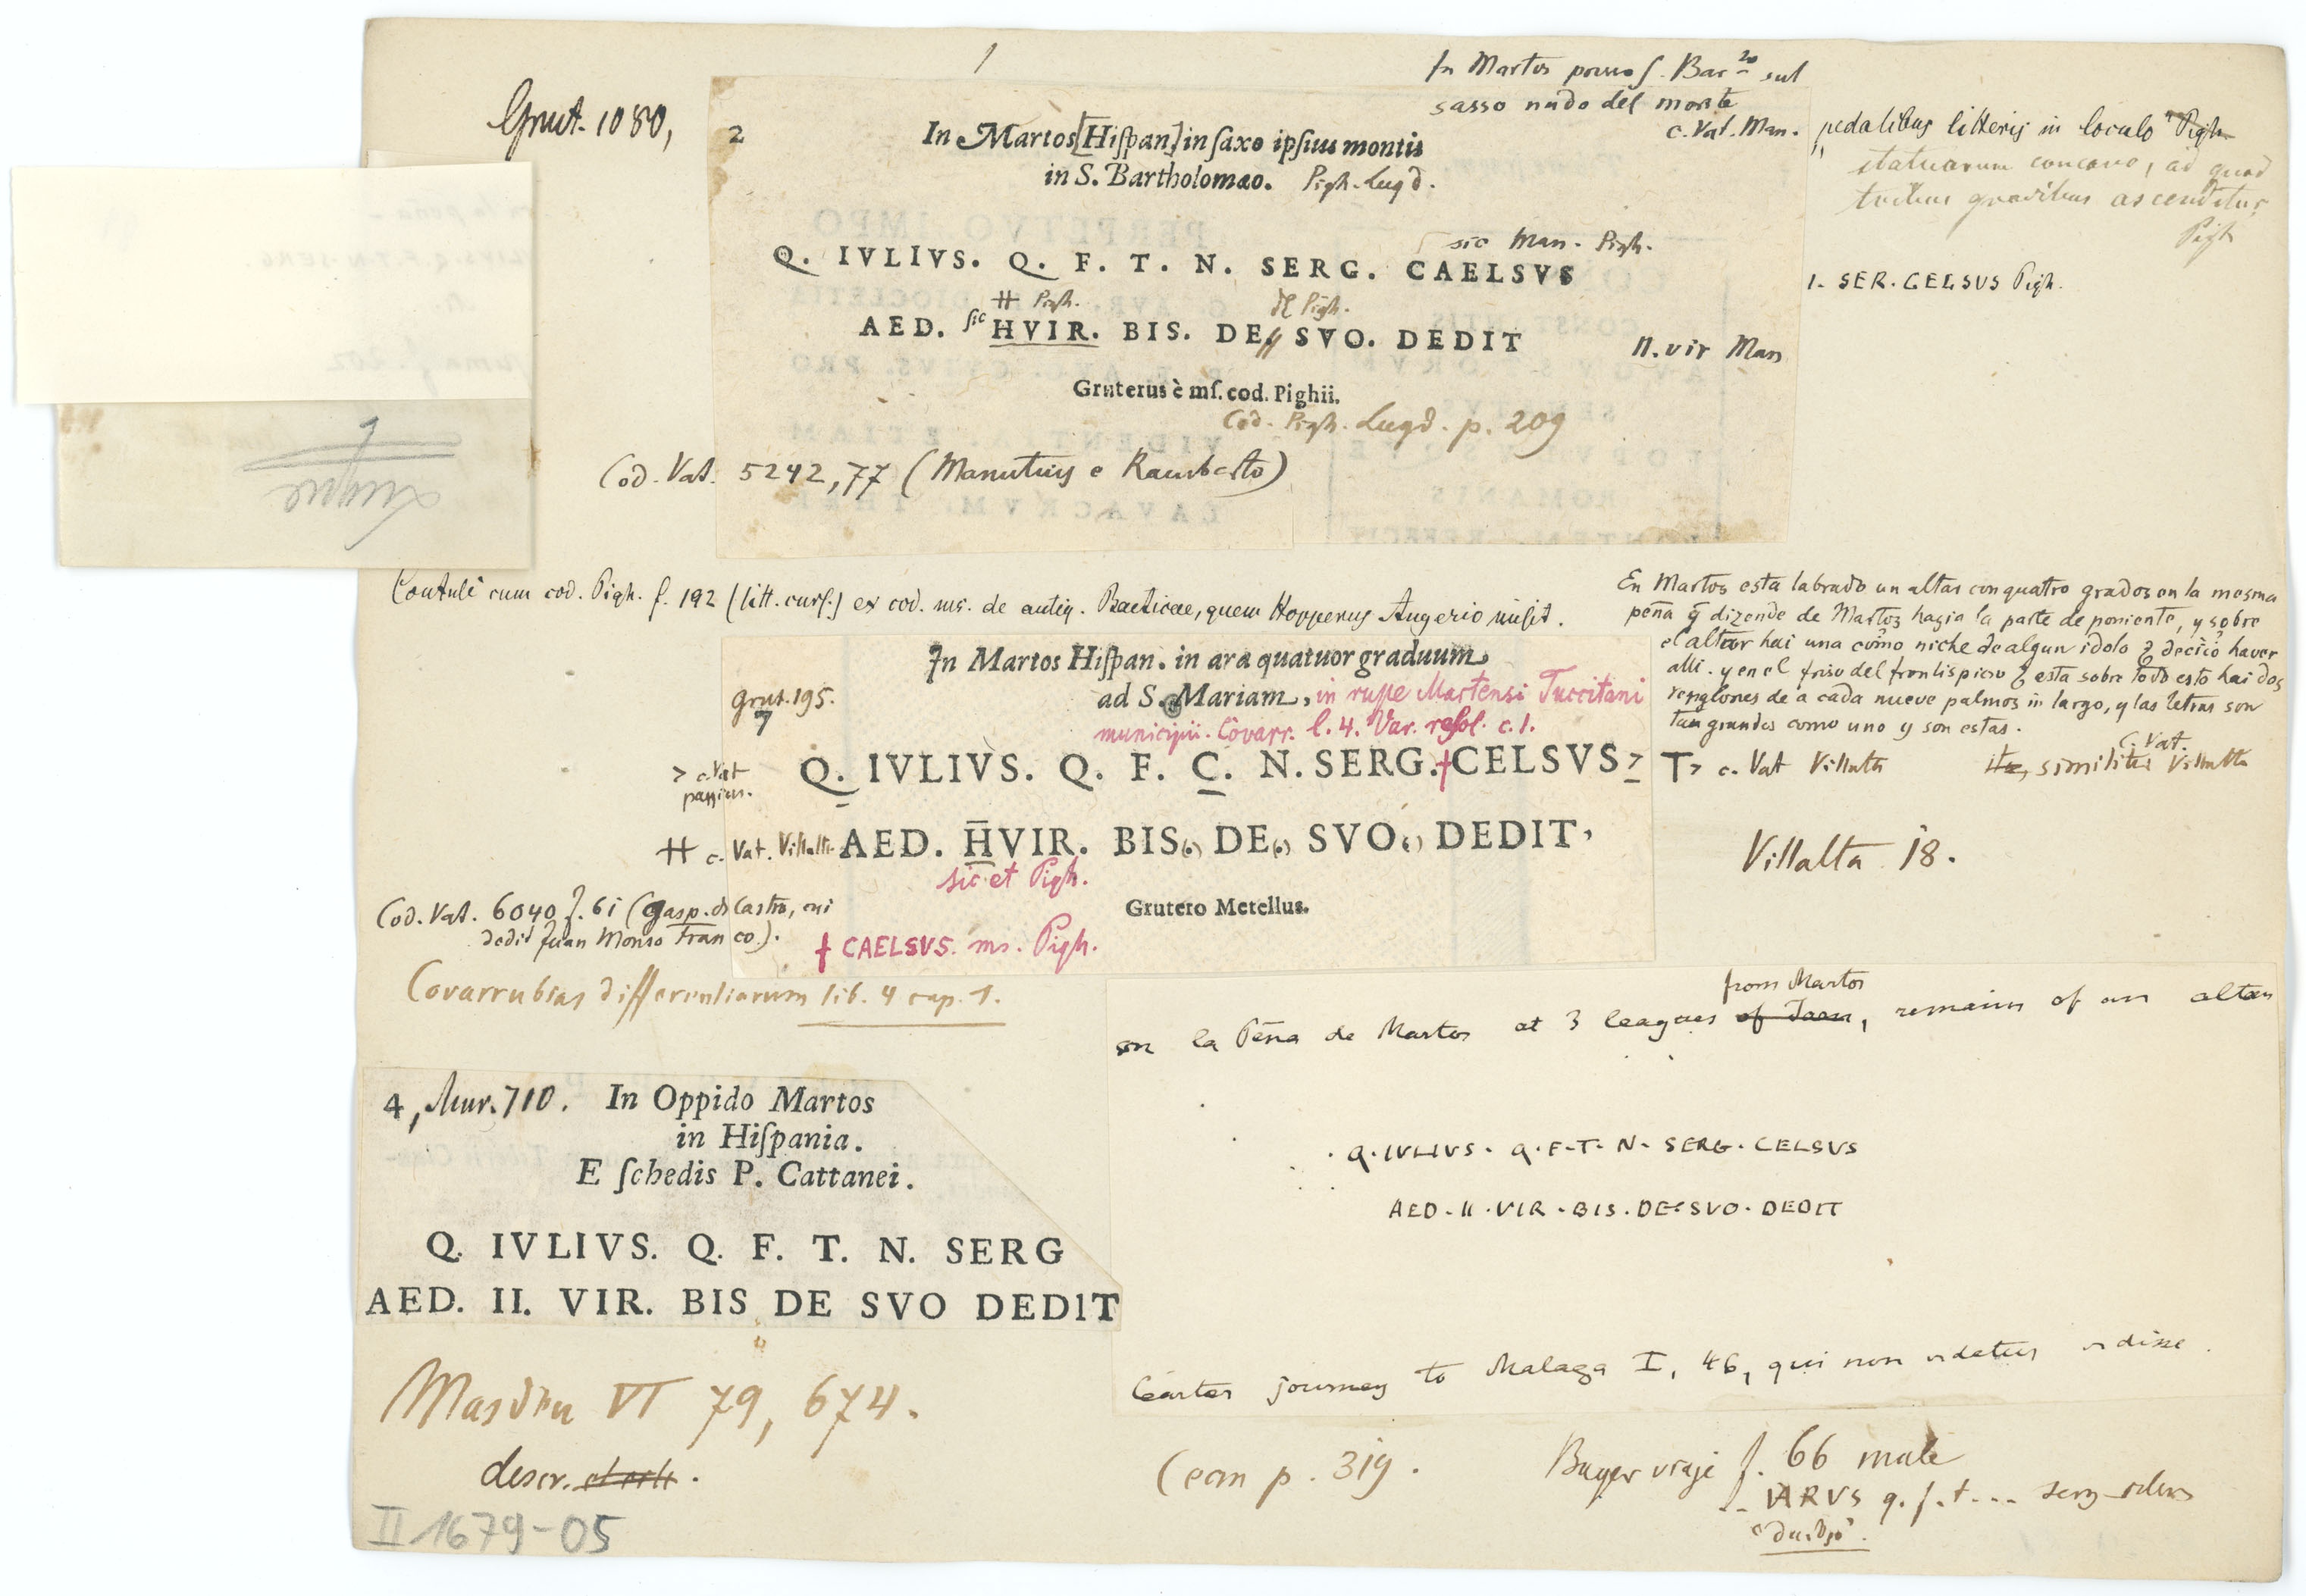 1
In Martos presso S. Bar.20 sul
sasso nudo del monte
c. Vat. Man.
Grut. 1080,
2
In Martos [Hiſpan] in ſaxo ipſius montis
in S. Bartholomæo. Pigh. Lugd.
pedalibus litteris in loculo Pigh
statuarum concavo, ad quod
tribus gradibus ascenditur
Pigh
sic Man. Pigh.
Q. IVLIVS. Q. F. T. N. SERG. CAELSVS
I. SER. CELSVS Pigh.
H Pigh.
DE Pigh.
AED. ſic HVIR. BIS. DE. SVO. DEDIT
II. vir Man
Gruterus è mſ. cod. Pighii.
Cod. Pigh. Lugd. p. 209
Cod. Vat. 5242, 77 (Manutius e Ramberto)
Contuli cum cod. Pigh. f. 192 (litt. curſ.) ex cod. ms. de antiq. Baeticae, quem Hopperus Augerio misit.
En Martos esta labrado un altar con quatro grados en la mesma
peña q̄ dizende de Martos hazia la parte de poniente, y sobre
el altar hai una como niche de algun idolo q̄ decio haver
alli. y en el friso del frontispicio q̄ esta sobre todo esto hai dos
renglones de a cada nueve palmos in largo, y las letras son
tan grandes como uno y son estas.
In Martos Hiſpan. in ara quatuor graduum
grut. 195.
7
ad S. Mariam, in rupe Martensi Tuccitani
municipii. Covarr. l. 4. Var. resol. c. 1.
> c. Vat
passim.
Q. IVLIVS. Q. F. C. N. SERG. †CELSVS>
T> c. Vat Villalta
c. Vat.
similiter Villalta
H c. Vat. Villalt.
AED. HVIR. BIS(.) DE(.) SVO(.) DEDIT,
sic et Pigh.
Villalta 18.
Cod. Vat. 6040 f. 61 (gasp. de Castro, cui
dedit Juan Alonso Franco.).
Grutero Metellus.
† CAELSVS. ms. Pigh.
Covarrubias differentiarum lib. 4 cap. 1.
from Martos
on la Peña de Martos at 3 leagues of Jaen, remains of an altar
Q. IVLIVS. Q. F. T. N. SERG. CELSVS
AED. II. VIR. BIS. DE. SVO. DEDIT
Carter journey to Malaga I, 46, qui non videtur vidisse.
4, Mur. 710. In Oppido Martos
in Hiſpania.
E ſchedis P. Cattanei.
Q. IVLIVS. Q. F. T. N. SERG
AED. II. VIR. BIS DE SVO DEDIT
Masdeu VI 79, 674.
descr.
Cean p. 319.
Bayer viaje f. 66 male
VARVS q. f. t... serg
II 1679-05